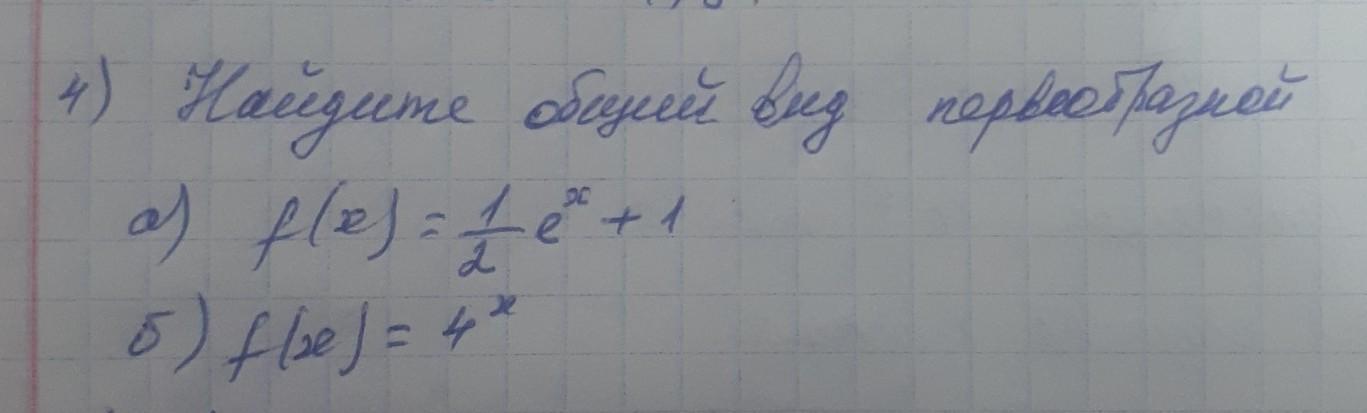 4) Найдите общий вид первообразной
а) f(x) = 1/2 e^x + 1
б) f(x) = 4^x